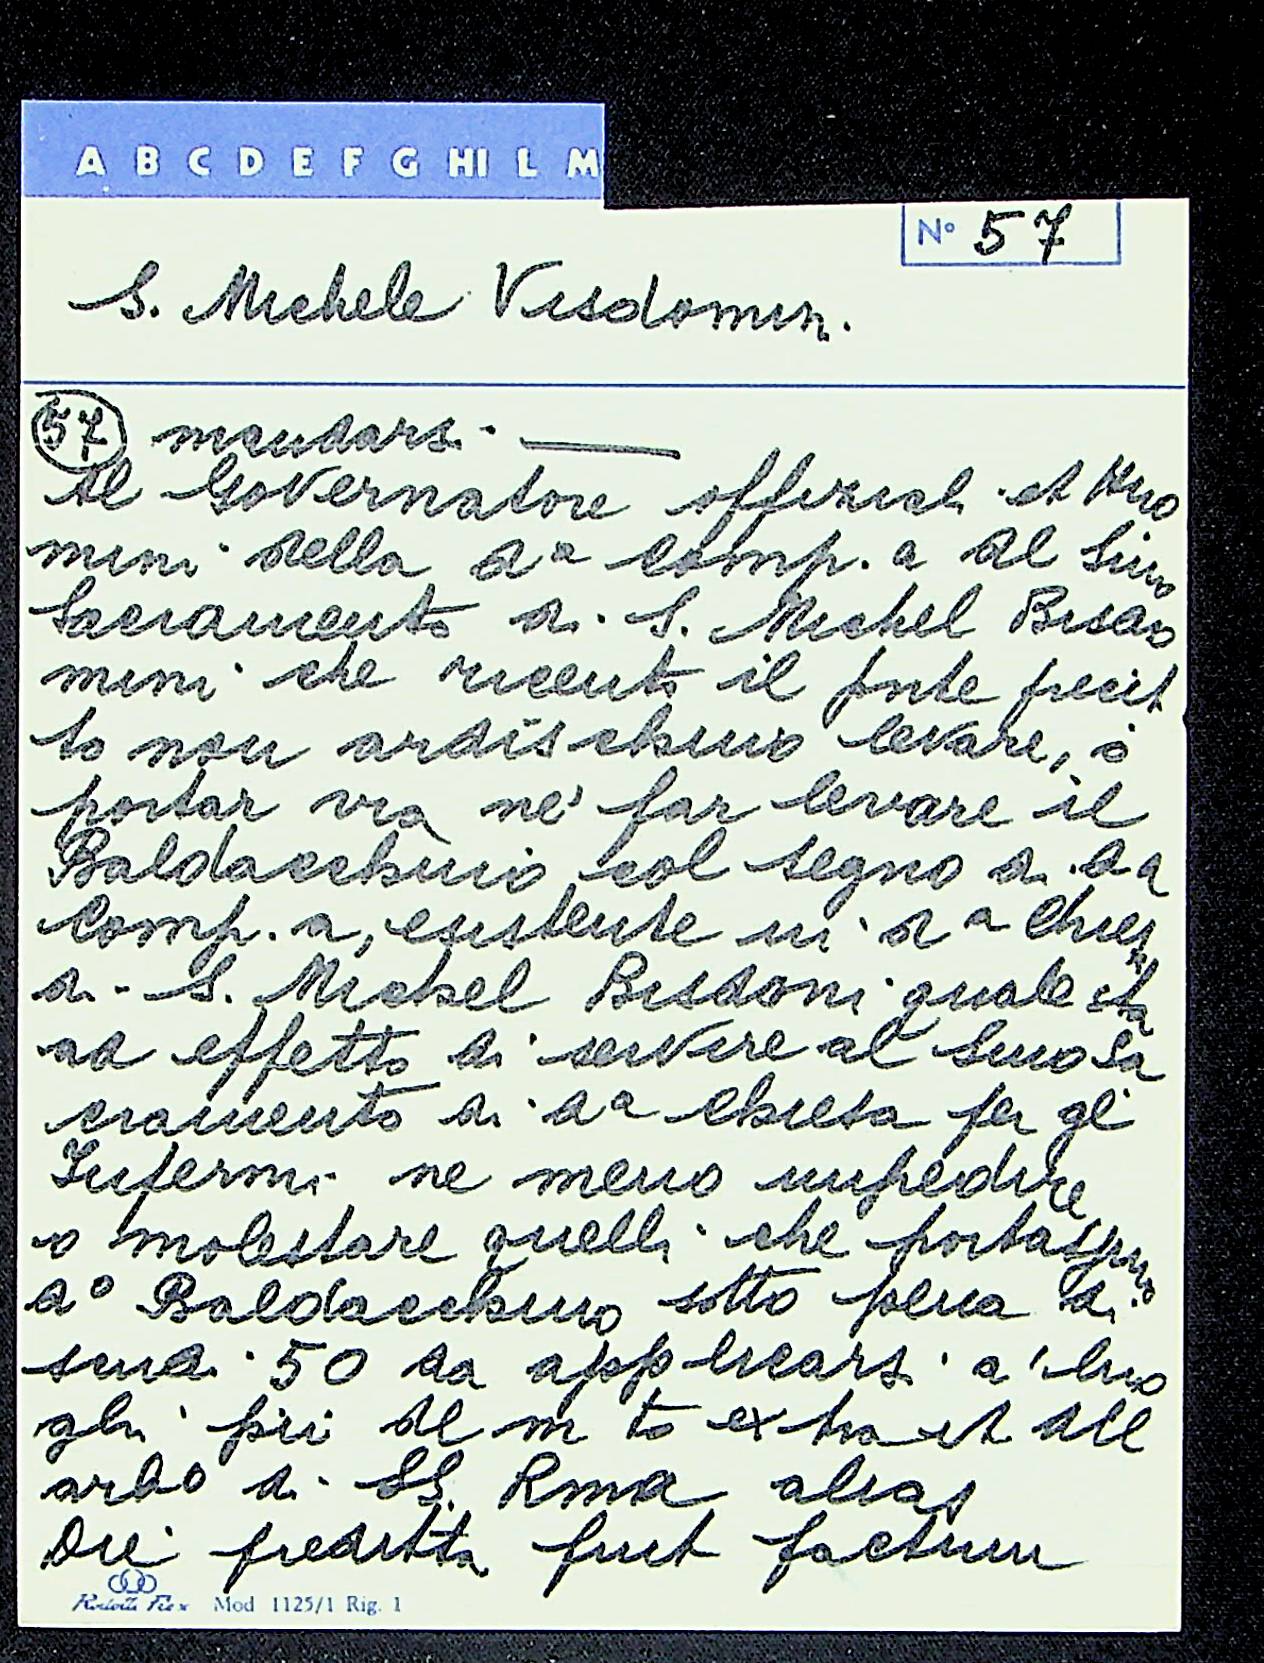 A B C D E F G HI L M
N° 57
S. Michele Visdomin.
57 mandars.
Al Governatore offizial. et Huo
mini della da comp.a del Smo
Sacramento di S. Michel Bisdo
mini che ricente il pnte precit
to non ardischino levare, ò
portar via nè far levare il
Baldacchino col segno di da
comp.a, esistente in da Chiesa
di S. Michel Bisdoni quale sta
ad effetto di servire al Smo Sa
cramento di da Chiesa per gl'
Infermi ne meno impedire
o molestare quelli che portassino
do Baldacchino sotto pena di
scudi 50 da applicarsi a' luo
ghi pii del m to extra et all
arbo di SS. Rma alias
Die preditta fuit factum
Mod 1125/1 Rig. 1